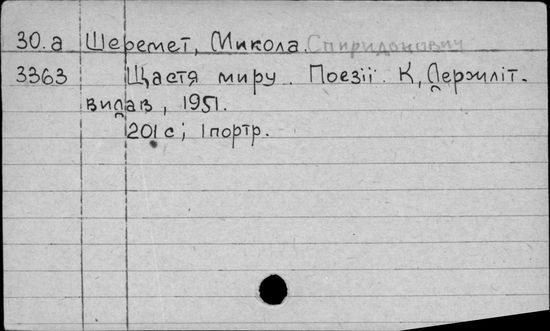 30.а Шеремет, Микола Спиридонович
3363 Щастя миру. Поезії. К, Держліт.
видав, 1951.
201 с; 1 портр.